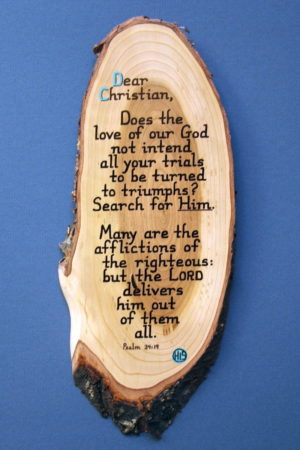 Dear
Christian,
Does the
love of our God
not intend
all your trials
to be turned
to triumphs?
Search for Him.
Many are the
afflictions of
the righteous:
but the LORD
delivers
him out
of them
all.
Psalm 34:19